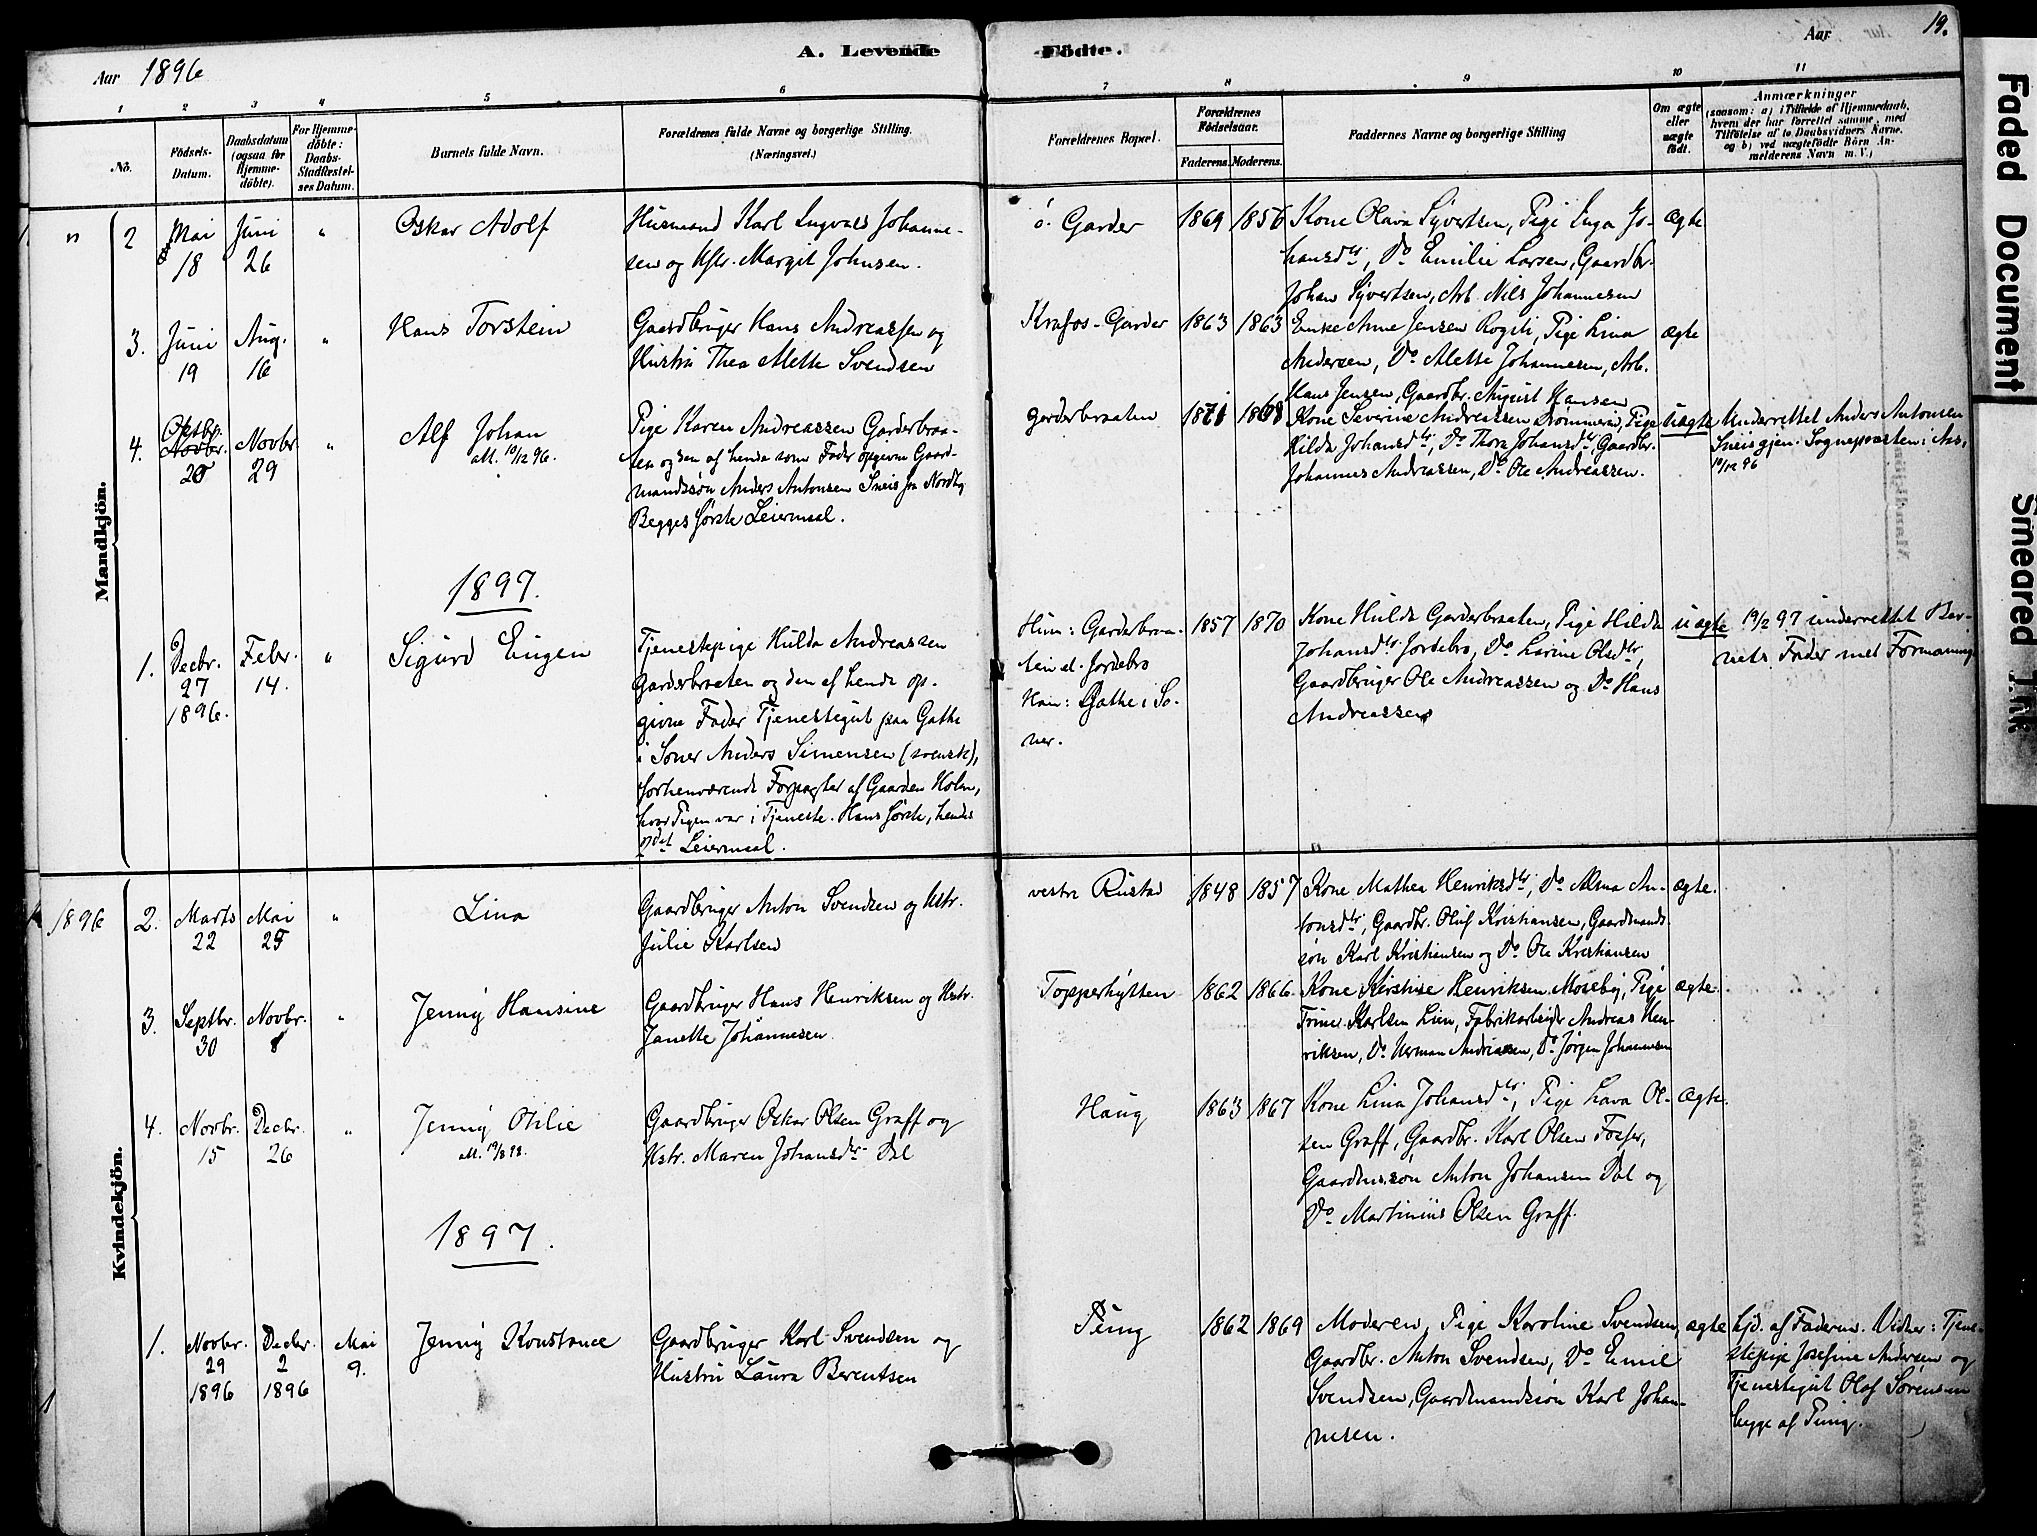 A. Levende Fødte.
Aar 1896
Aar
19.
1 2 3 4 5 6 7 8 9 10 11
No.
Födsels-Datum.
Daabsdatum (ogsaa for Hjemme-döbte).
For Hjemme-döbte: Daabs-Stadfæstel-ses Datum.
Barnets fulde Navn.
Forældrenes fulde Navne og borgerlige Stilling.
(Næringsvei.)
Forældrenes Bopæl.
Forældrenes Födselsaar.
Faderens. Moderens.
Faddernes Navne og borgerlige Stilling
Om ægte eller uægte födt.
Anmærkninger
(saasom: a) i Tilfælde af Hjemmedaab, hvem der har forrettet samme, med Tilföielse af to Daabsvidners Navne, og b) ved uægtefödte Börn An-melderens Navn m. V.)
Mandkjön.
" 2 Mai 18 Juni 26 " Oskar Adolf
Husmand Karl Ingvald Johanne-
sen og Hstr. Margit Johnsen.
ö. Garder 1869 1856
Kone Olava Syvertsen, Pige Inga Jo-
hansdtr, Do Emilie Larsen, Gaardbr.
Johan Syvertsen, Arb. Nils Johannesen
Ægte
3. Juni 19 Aug. 16 " Hans Torstein
Gaardbruger Hans Andreassen og
Hustru Thea Mette Svendsen
Krafos-Garder 1863 1863
Enke Anne Jensen Rogsti, Pige Lina
Andersen, Do Alette Johannesen, Arb.
Hans Jensen, Gaardbr. August Hansen
ægte
4. Oktbr. Novbr. 25 Novbr 29 " Alf Johan
att. 10/12 96.
Pige Karen Andreassen Garderbraa-
ten og den af hende som Fader opgivne Gaard-
mandssøn Anders Antonsen Sneis fra Nordby
Begges første Leiermaal.
Garderbraaten 1871 1868
Kone Severine Andreassen Drømmerin, Pige
Hilda Johansdtr, Do Thora Johansdtr, Gaardbr.
Johannes Andreassen, Do Ole Andreassen.
uægte
Underrettet Anders Antonsen
Sneis gjen. Sognepræsten i Aas,
10/12 96
1897.
1. Decbr. 27 1896. Febr. 14. " Sigurd Eugen
Tjenestepige Hulda Andreassen
Garderbraaten og den af hende op-
givne Fader Tjenestegut paa Gathe
i Soner Anders Simensen (svensk),
forhenværende Forpagter af Gaarden Holm,
hvor Pigen var i Tjeneste. Hans første, hendes
2det Leiermaal.
Hun: Garderbraa-
ten el. Jordebro
Han: Gathe i So-
ner.
1857 1870
Kone Hulda Garderbraaten, Pige Hilda
Johansdtr Jordebro, Do Larine Olsdtr,
Gaardbruger Ole Andreassen og Do Hans
Andreassen
uægte
19/2 97 underrettet Bar-
nets Fader med Formaning
Kvindekjön.
1896 2. Marts 22 Mai 25 " Lina
Gaardbruger Anton Svendsen og Hstr.
Julie Karlsen
vestre Rustad 1848 1857
Kone Mathea Henriksdtr, Do Alma An-
tonsdtr, Gaardbr. Oluf Kristiansen, Gaardmands-
søn Karl Kristiansen og Do Ole Kristiansen
ægte.
3. Septbr. 30 Novbr. 8 " Jenny Hansine
Gaardbruger Hans Henriksen og Hstr.
Janette Johannesen
Topperhytten 1862 1866
Kone Kirstine Henriksen Moseby, Pige
Trine Karlsen Lien, Fabrikarbeider Andreas Hen-
riksen, Do Herman Andreassen, Do Jørgen Johannesen
ægte.
4. Novbr. 15 Decbr. 26 " Jenny Otilie
att. 19/8 98.
Gaardbruger Oskar Olsen Graff og
Hstr. Maren Johansdtr Dal
Haug 1863 1867
Kone Lina Johansdtr, Pige Lava Ol-
sen Graff, Gaardbr. Karl Olsen Fosser,
Gaardm.søn Anton Johansen Dal og
Do Martinius Olsen Graff.
Ægte.
1897.
1. Novbr. 29 1896 Decbr. 2 1896 Mai 9. Jenny Konstance
Gaardbruger Karl Svendsen og
Hustru Laura Berentsen
Pung 1862 1869
Moderen, Pige Karoline Svendsen,
Gaardbr. Anton Svendsen, Do Emil
Svendsen, Gaardmandssøn Karl Johan-
nesen.
ægte
Hjd. af Faderen. Vidner: Tjene-
stepige Josefine Andersen og
Tjenestegut Olaf Sørensen
begge af Pung.
Faded Document
Smeared Ink